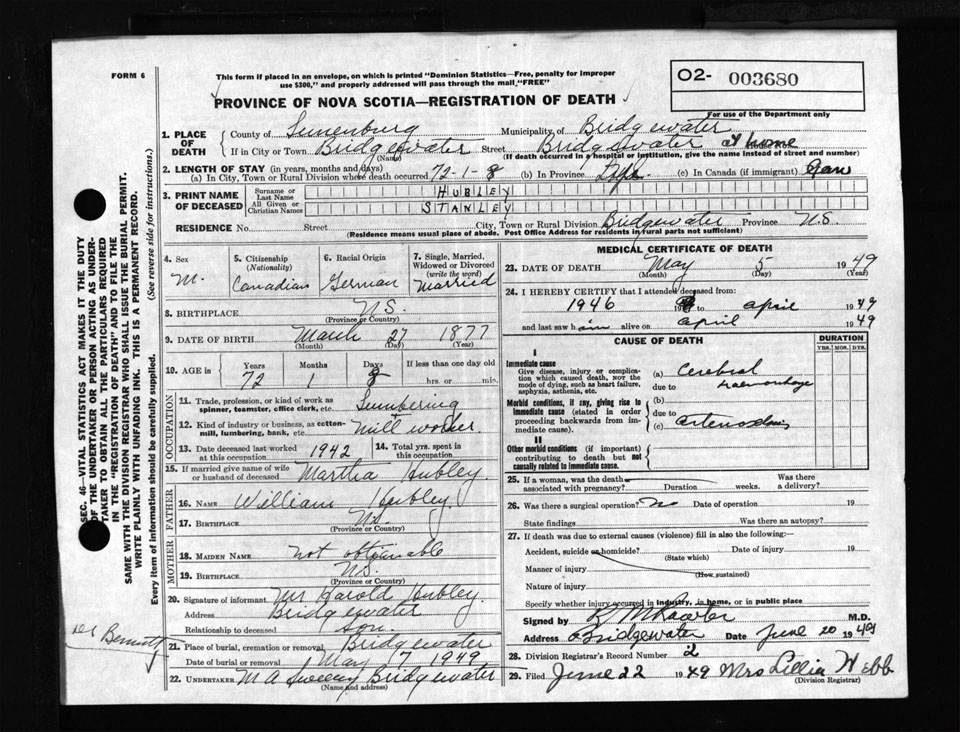 FORM 6
This form if placed in an envelope, on which is printed "Dominion Statistics—Free, penalty for improper
use $300," and properly addressed will pass through the mail "FREE"
O2- 003680
For use of the Department only
PROVINCE OF NOVA SCOTIA—REGISTRATION OF DEATH
1. PLACE OF DEATH County of Lunenburg Municipality of Bridgewater
If in City or Town Bridgewater Street Bridgewater at home
(Name) (If death occurred in a hospital or institution, give the name instead of street and number)
2. LENGTH OF STAY (in years, months and days)
(a) In City, Town or Rural Division where death occurred 72-1-8 (b) In Province Life (c) In Canada (if immigrant)
3. PRINT NAME OF DECEASED Surname or Last Name HUBLEY
All Given or Christian Names STANLEY
RESIDENCE No. Street City, Town or Rural Division Bridgewater Province N.S.
(Residence means usual place of abode. Post Office Address for residents in rural parts not sufficient)
4. Sex M.
5. Citizenship (Nationality) Canadian
6. Racial Origin German
7. Single, Married, Widowed or Divorced (write the word) Married
8. BIRTHPLACE N.S.
(Province or Country)
9. DATE OF BIRTH March 27 1877
(Month) (Day) (Year)
10. AGE in Years 72 Months 1 Days 8 If less than one day old hrs. or min.
OCCUPATION
11. Trade, profession, or kind of work as spinner, teamster, office clerk, etc. Lumbering
12. Kind of industry or business, as cotton-mill, lumbering, bank, etc. Mill worker
13. Date deceased last worked at this occupation 1942
14. Total yrs. spent in this occupation
15. If married give name of wife or husband of deceased Martha Hubley
FATHER
16. NAME William Hubley
17. BIRTHPLACE N.S.
(Province or Country)
MOTHER
18. MAIDEN NAME not obtainable
19. BIRTHPLACE N.S.
(Province or Country)
20. Signature of informant Mr Harold Hubley
Address Bridgewater
Relationship to deceased son
21. Place of burial, cremation or removal Bridgewater
Date of burial or removal May 7 1949
22. UNDERTAKER M A Sweeny Bridgewater
(Name and address)
MEDICAL CERTIFICATE OF DEATH
23. DATE OF DEATH May 5 1949
(Month) (Day) (Year)
24. I HEREBY CERTIFY that I attended deceased from:
1946 to april 1949
and last saw him alive on april 1949
CAUSE OF DEATH
DURATION
YRS. MOS. DYS.
I
Immediate cause
Give disease, injury or complication which caused death, NOT the mode of dying, such as heart failure, asphyxia, asthenia, etc.
(a) Cerebral
due to haemorrhage
Morbid conditions, if any, giving rise to immediate cause (stated in order proceeding backwards from immediate cause).
(b)
due to
(c)
II
Other morbid conditions (if important) contributing to death but not causally related to immediate cause.
25. If a woman, was the death associated with pregnancy? Duration weeks. Was there a delivery?
26. Was there a surgical operation? No Date of operation 19
State findings Was there an autopsy?
27. If death was due to external causes (violence) fill in also the following:
Accident, suicide or homicide? Date of injury 19
(State which)
Manner of injury
(How sustained)
Nature of injury
Specify whether injury occurred in industry, in home, or in public place
Signed by M.D.
Address Bridgewater Date June 20 1949
28. Division Registrar's Record Number 2
29. Filed June 22 1949 Mrs Lillia Webb
(Division Registrar)
SEC. 46—VITAL STATISTICS ACT MAKES IT THE DUTY
OF THE UNDERTAKER OR PERSON ACTING AS UNDER-
TAKER TO OBTAIN ALL THE PARTICULARS REQUIRED
IN THE "REGISTRATION OF DEATH" AND TO FILE THE
SAME WITH THE DIVISION REGISTRAR WHO SHALL ISSUE THE BURIAL PERMIT.
WRITE PLAINLY WITH UNFADING INK. THIS IS A PERMANENT RECORD.
Every item of information should be carefully supplied. (See reverse side for instructions.)